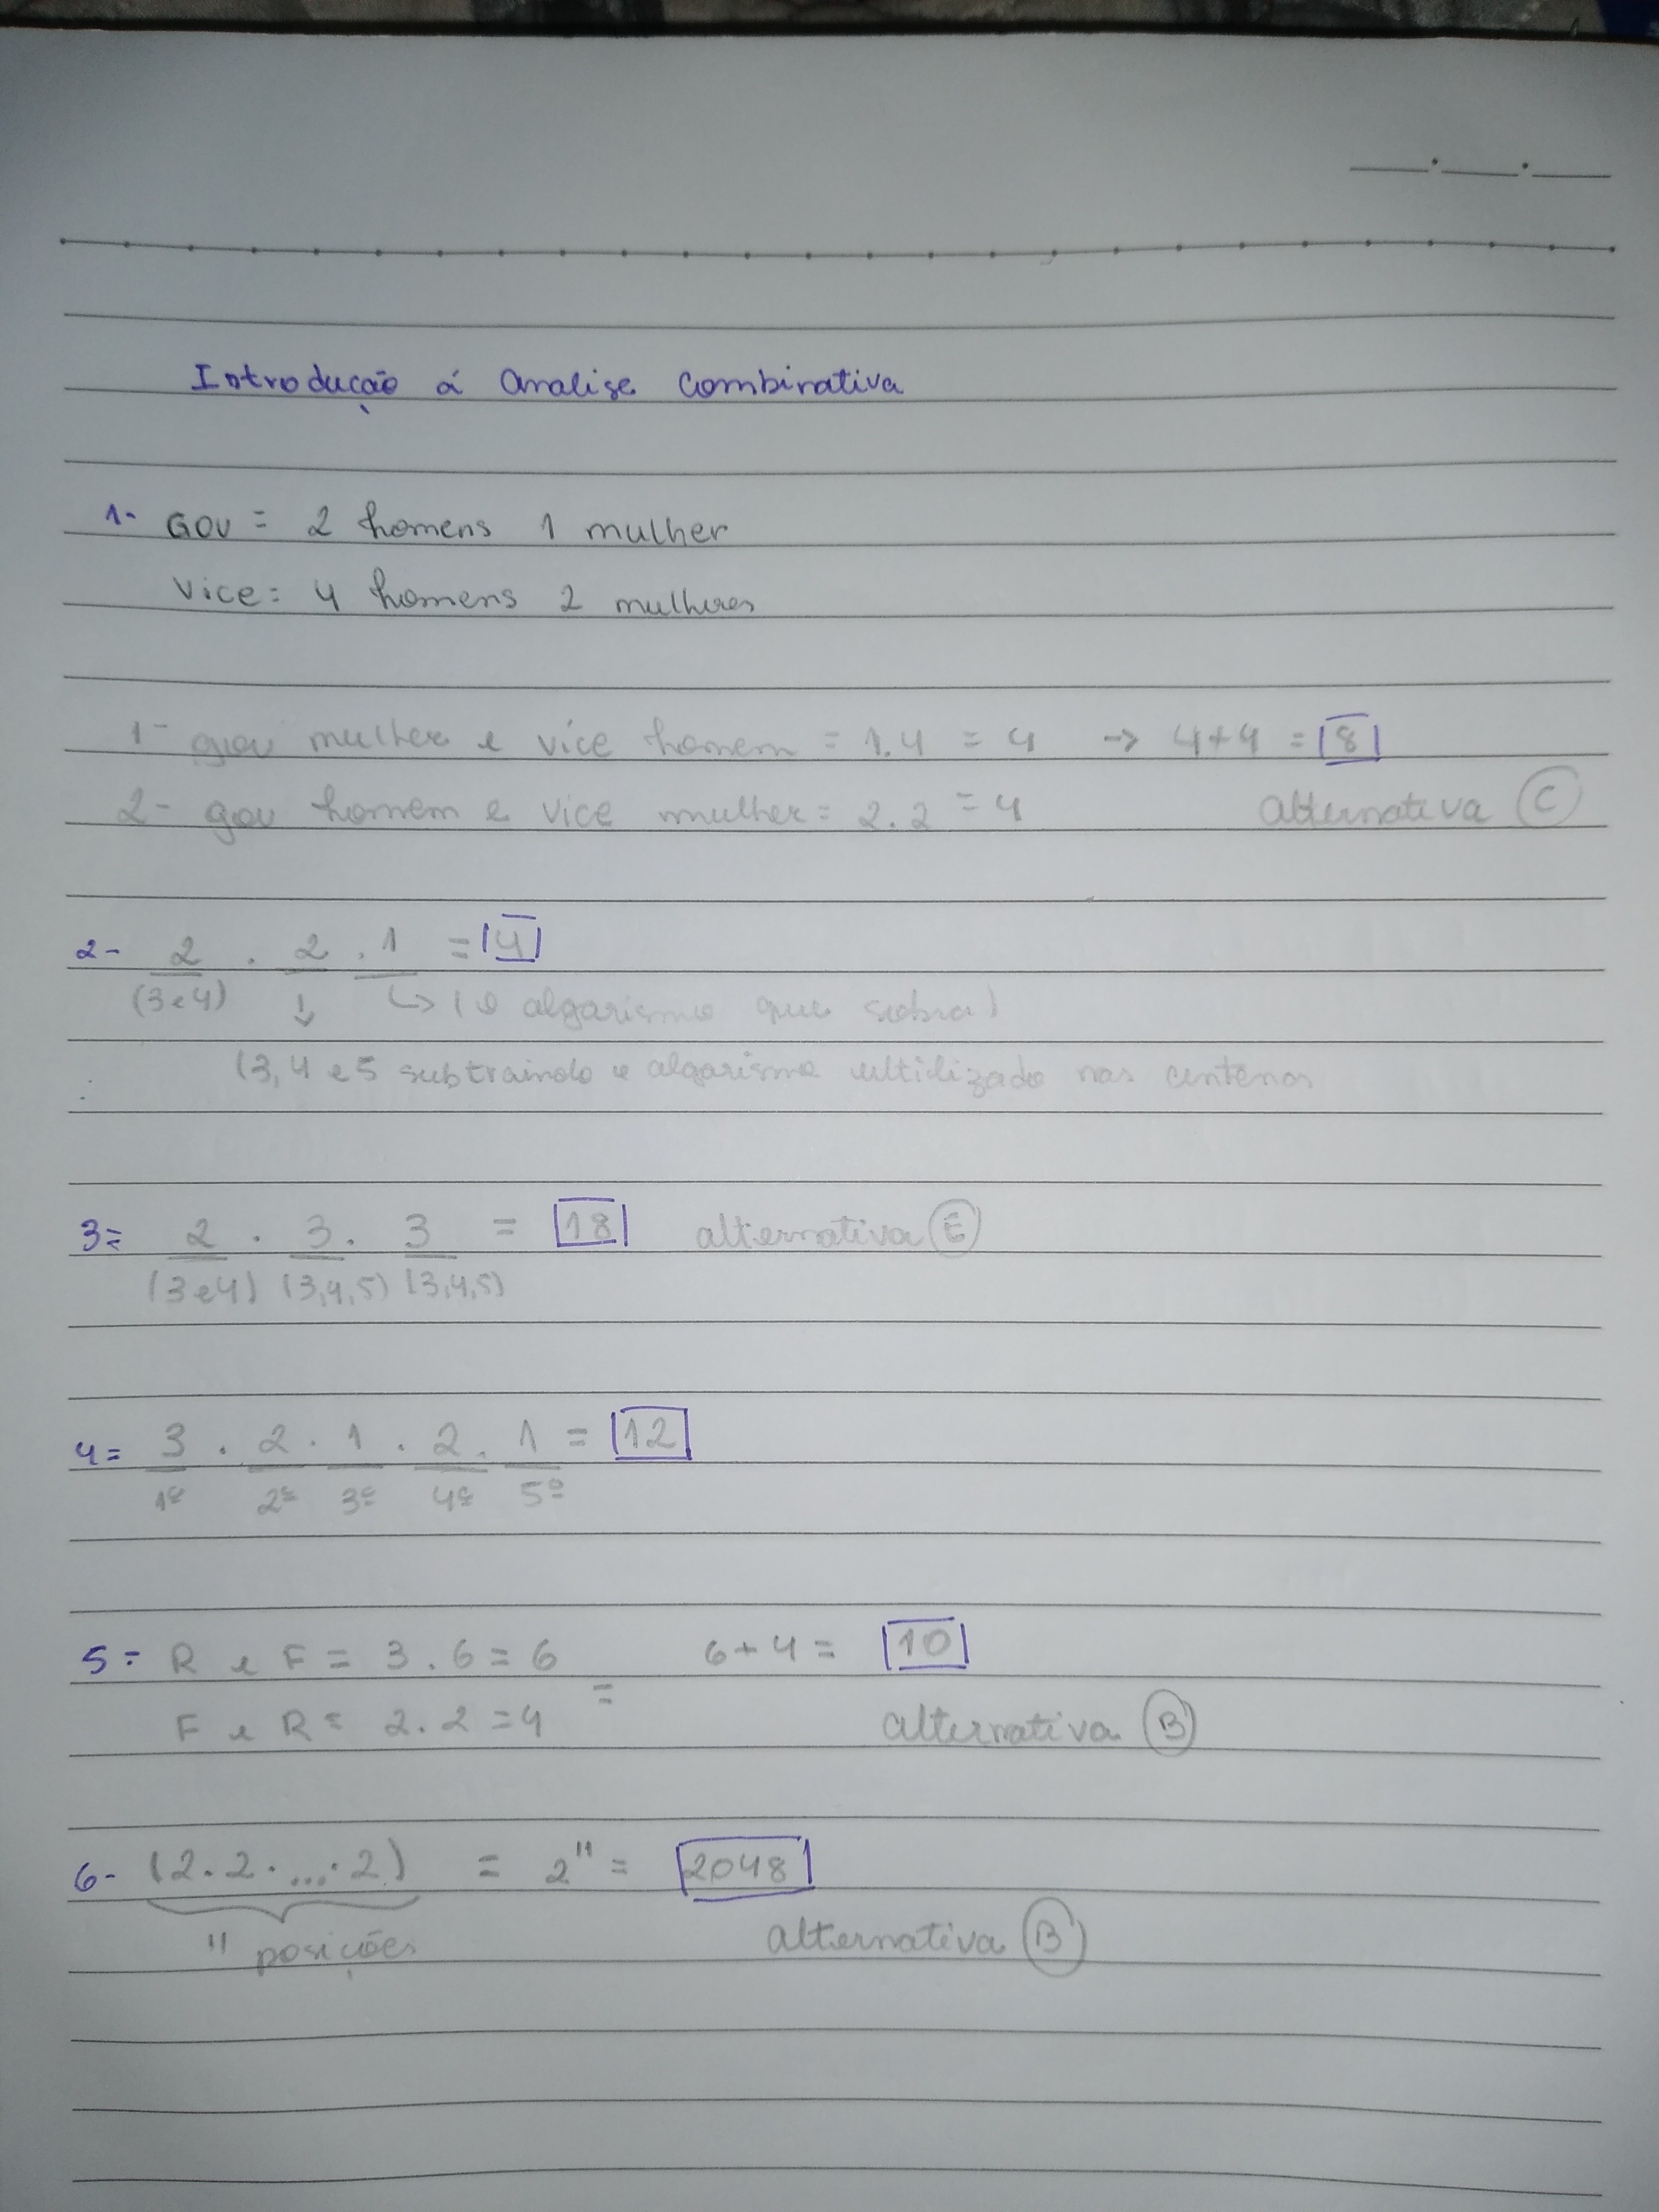 Introdução á analise combinativa
1- GOV = 2 homens 1 mulher
Vice: 4 homens 2 mulheres
1- gov mulher e vice homem = 1.4 = 4 → 4+4 = 8
2- gov homem e vice mulher = 2.2 = 4 alternativa C
2- 2 . 2 . 1 = 4
(3e4) ↓ ↳ (o algarismo que sobra)
(3,4 e 5 subtraindo o algarismo ultilizado nas centenas
3= 2 . 3 . 3 = 18 alternativa E
(3e4) (3,4,5) (3,4,5)
4= 3 . 2 . 1 . 2 . 1 = 12
1º 2º 3º 4º 5º
5= R e F = 3.6 = 6 6+4 = 10
F e R = 2.2 = 4 = alternativa B
6- (2.2. ... .2) = 2¹¹ = 2048
11 posições alternativa B